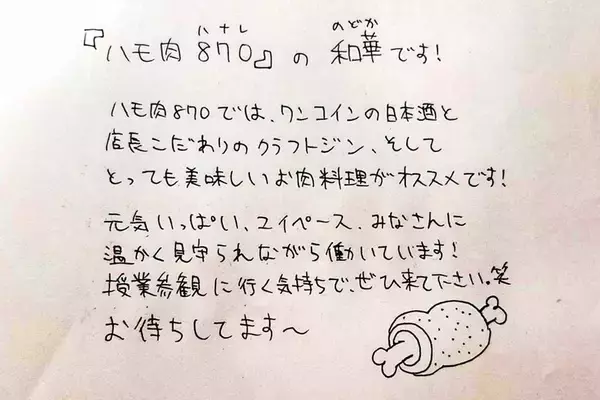 ハナレ のどか
『ハモ肉 870』の 和華です!
ハモ肉870では、ワンコインの日本酒と
店長こだわりのクラフトジン、そして
とっても美味しいお肉料理がオススメです!
元気いっぱい、ユイペース、みなさんに
温かく見守られながら働いています!
授業参観に行く気持ちで、ぜひ来て下さい。笑
お待ちしてます〜